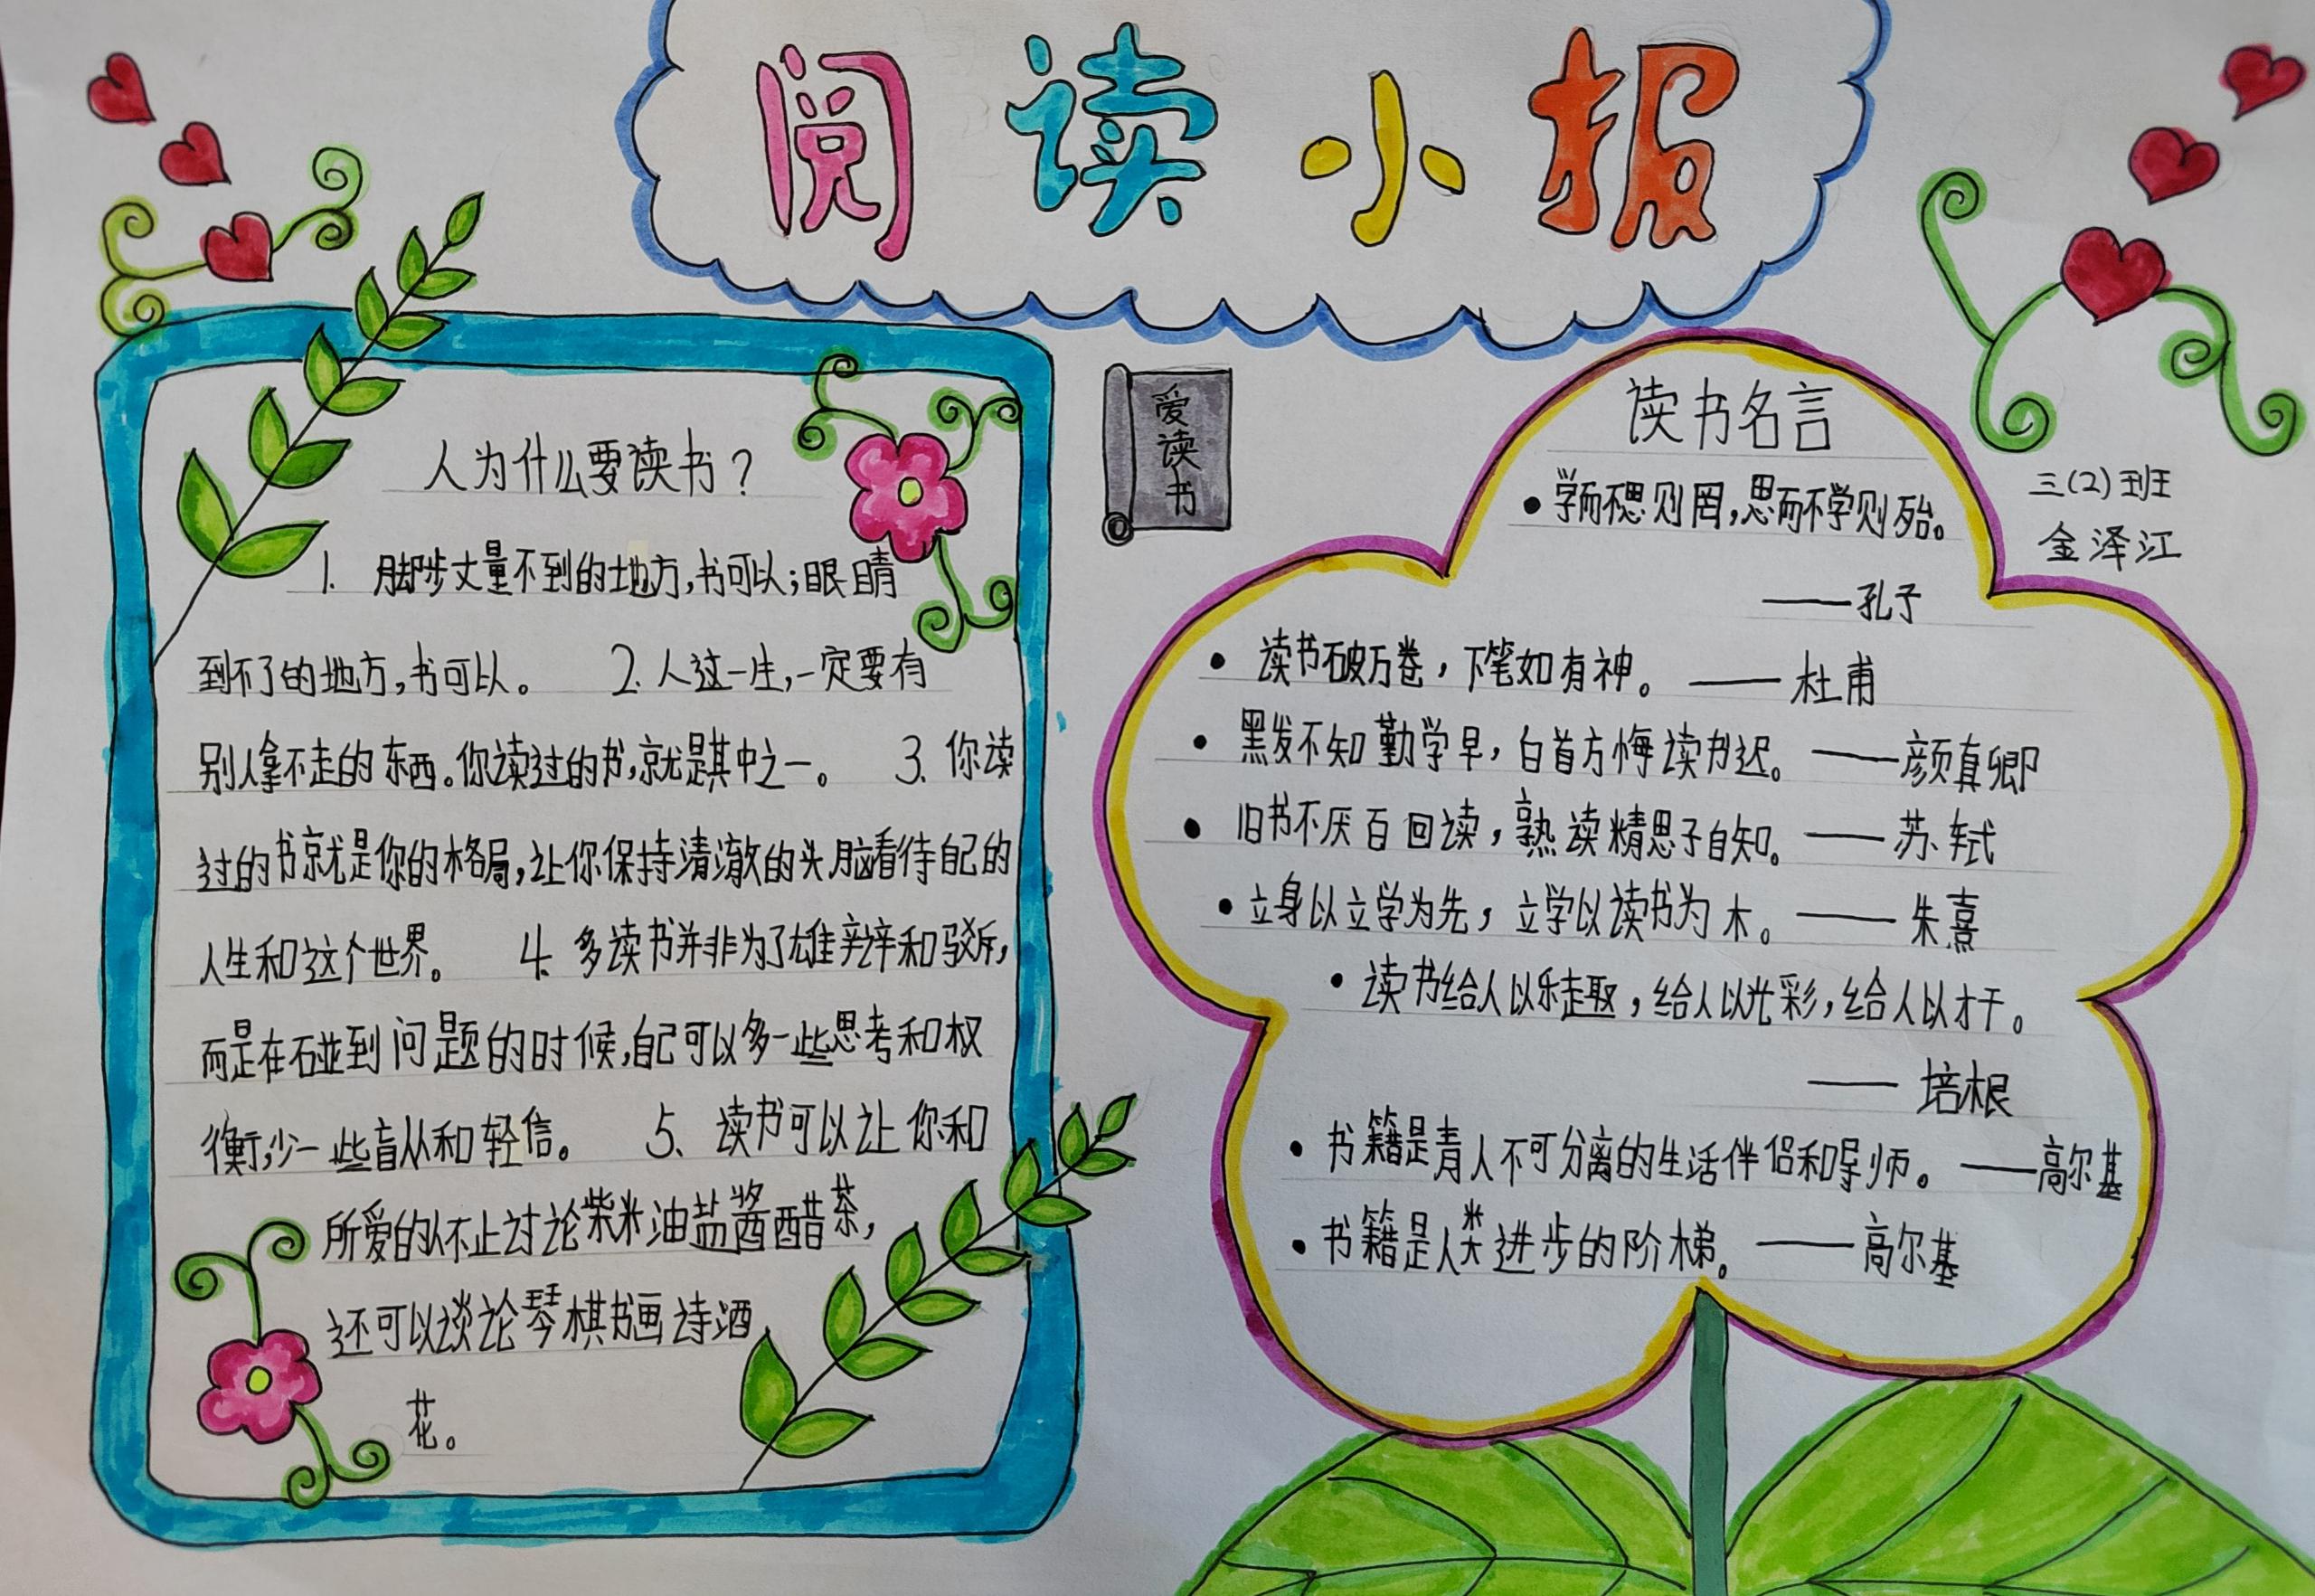 阅读小报
人为什么要读书？
1. 脚步丈量不到的地方,书可以;眼睛
到不了的地方,书可以。 2. 人这一生,一定要有
别人拿不走的东西。你读过的书,就是其中之一。 3、你读
过的书就是你的格局,让你保持清澈的头脑看待自己的
人生和这个世界。 4、多读书并非为了雄辩和驳斥,
而是在碰到问题的时候,自己可以多一些思考和权
衡,少一些盲从和轻信。 5、读书可以让你和
所爱的人不止讨论柴米油盐酱醋茶,
还可以谈论琴棋书画诗酒
花。
爱读书
读书名言
•学而不思则罔,思而不学则殆。
——孔子
• 读书破万卷,下笔如有神。——杜甫
• 黑发不知勤学早,白首方悔读书迟。——颜真卿
• 旧书不厌百回读,熟读精思子自知。——苏轼
•立身以立学为先,立学以读书为本。——朱熹
•读书给人以乐趣,给人以光彩,给人以才干。
——培根
•书籍是青人不可分离的生活伴侣和导师。——高尔基
•书籍是人类进步的阶梯。——高尔基
三(2)班
金泽江